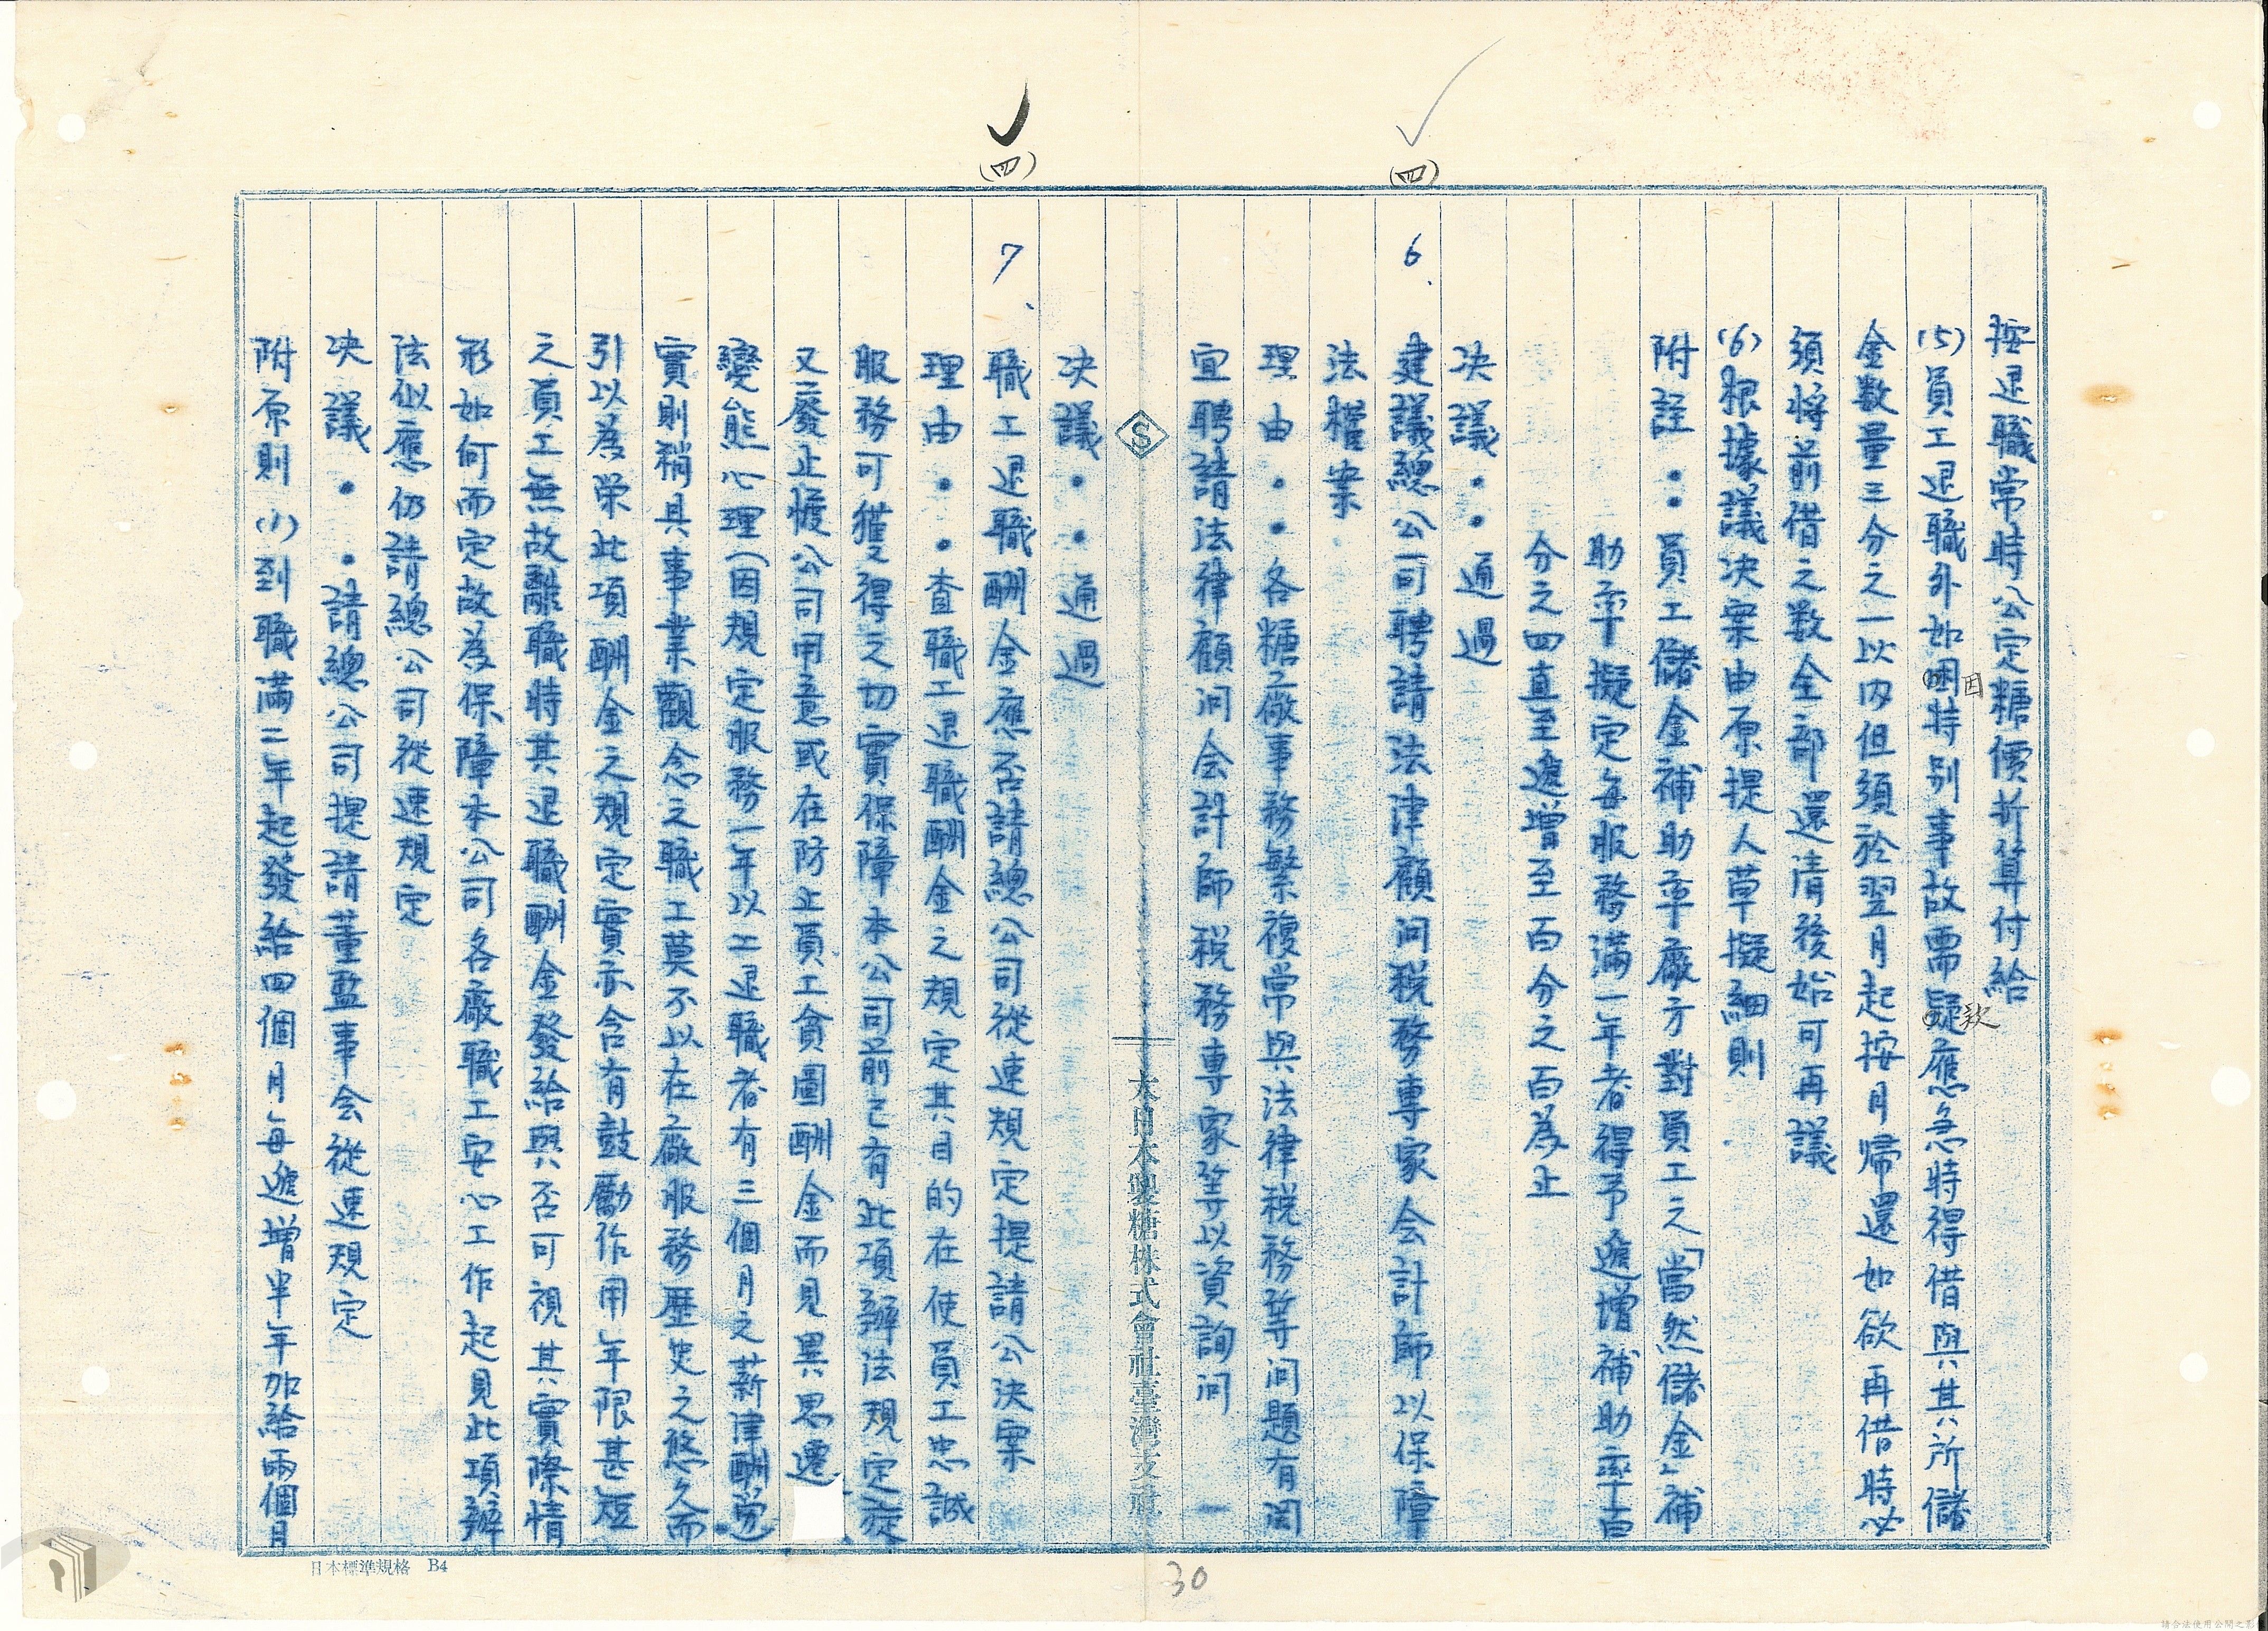 按退職當時公定糖價折算付給
(5)員工退職外如困特別事故需疑應急時得借與其所儲
因
款
金数量三分之一以内但須於翌月起按月帰還如欲再借時必
須將前借之数全部還清後始可再議
(6)根據議決案由原提人草擬細則
附註：員工儲金補助率廠方對員工之「當然儲金」補
助率擬定每服務滿一年者得予遞增補助率百
分之四直至遞增至百分之百為止
決議：通過
(四)
6. 建議總公司聘請法律顧问税務専家会計師以保障
法權案
理由：各糖廠事務繁複常與法律税務等问題有関
宜聘請法律顧问会計師税務専家等以資詢问
大日本製糖株式會社臺灣支社
決議：通過
(四)
7. 職工退職酬金應否請總公司從速規定提請公決案
理由：查職工退職酬金之規定其目的在使員工忠誠
服務可獲得之切實保障本公司前已有此項辦法規定旋
又廢止懷公司用意或在防止員工貪圖酬金而見異思遷
變態心理(因規定服務一年以上退職者有三個月之薪津酬勞
實則稍具事業觀念之職工莫不以在廠服務歷史之悠久而
引以為栄此項酬金之規定實亦含有鼓勵作用年限甚短
之員工無故離職時其退職酬金發給與否可視其實際情
形如何而定故為保障本公司各廠職工安心工作起見此項辦
法似應仍請總公司從速規定
決議：請總公司提請董監事会從速規定
附原則(1)到職滿二年起發給四個月每遞增半年加給兩個月
30
日本標準規格 B4
請合法使用公開之影